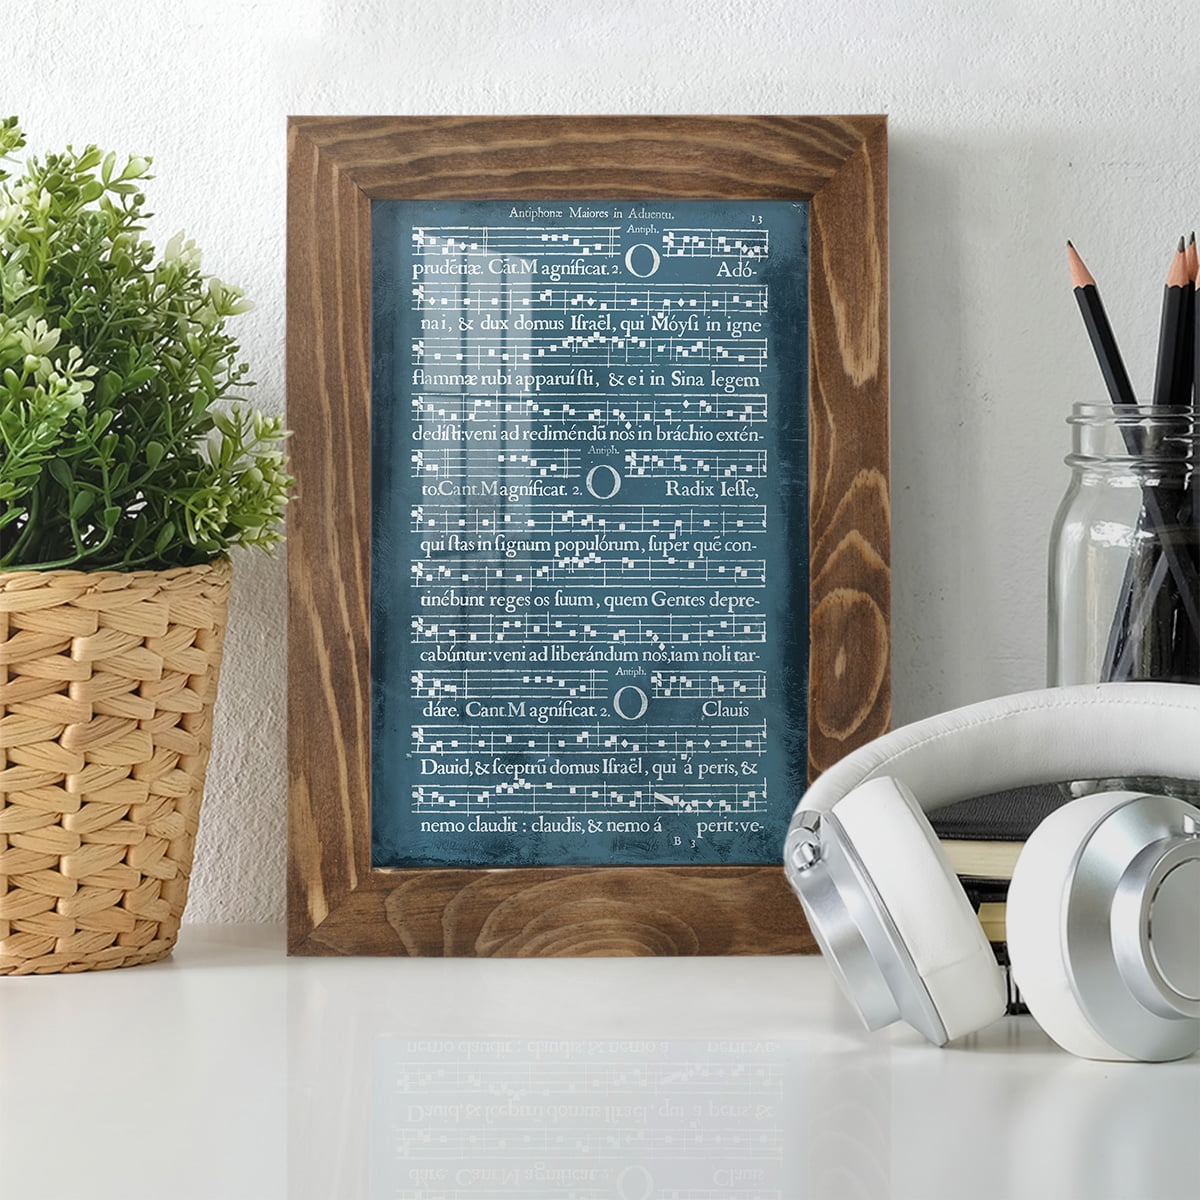 Antiphonæ Maiores in Aduentu. 13
Antiph.
prudẽtiæ. Cãt. M agníficat. 2. O Adó-
nai, & dux domus Iſraël, qui Móyſi in igne
flammæ rubi apparuíſti, & e i in Sina legem
dedíſti: veni ad rediméndũ nos in bráchio extén-
Antiph.
to. Cant. M agníficat. 2. O Radix Ieſſe,
qui ſtas in ſignum populórum, ſuper quẽ con-
tinébunt reges os ſuum, quem Gentes depre-
cabúntur: veni ad liberándum nos, iam noli tar-
Antiph.
dáre. Cant. M agníficat. 2. O Clauis
Dauid, & ſceptrũ domus Iſraël, qui á peris, &
nemo claudit : claudis, & nemo á perit: ve-
B 3